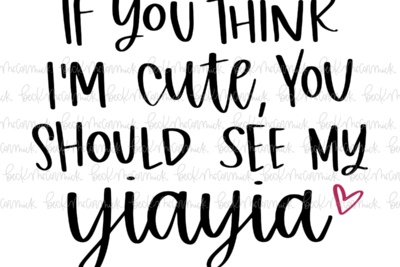 IF YOU THINK
I'M CUTE, YOU
SHOULD SEE MY
yiayia